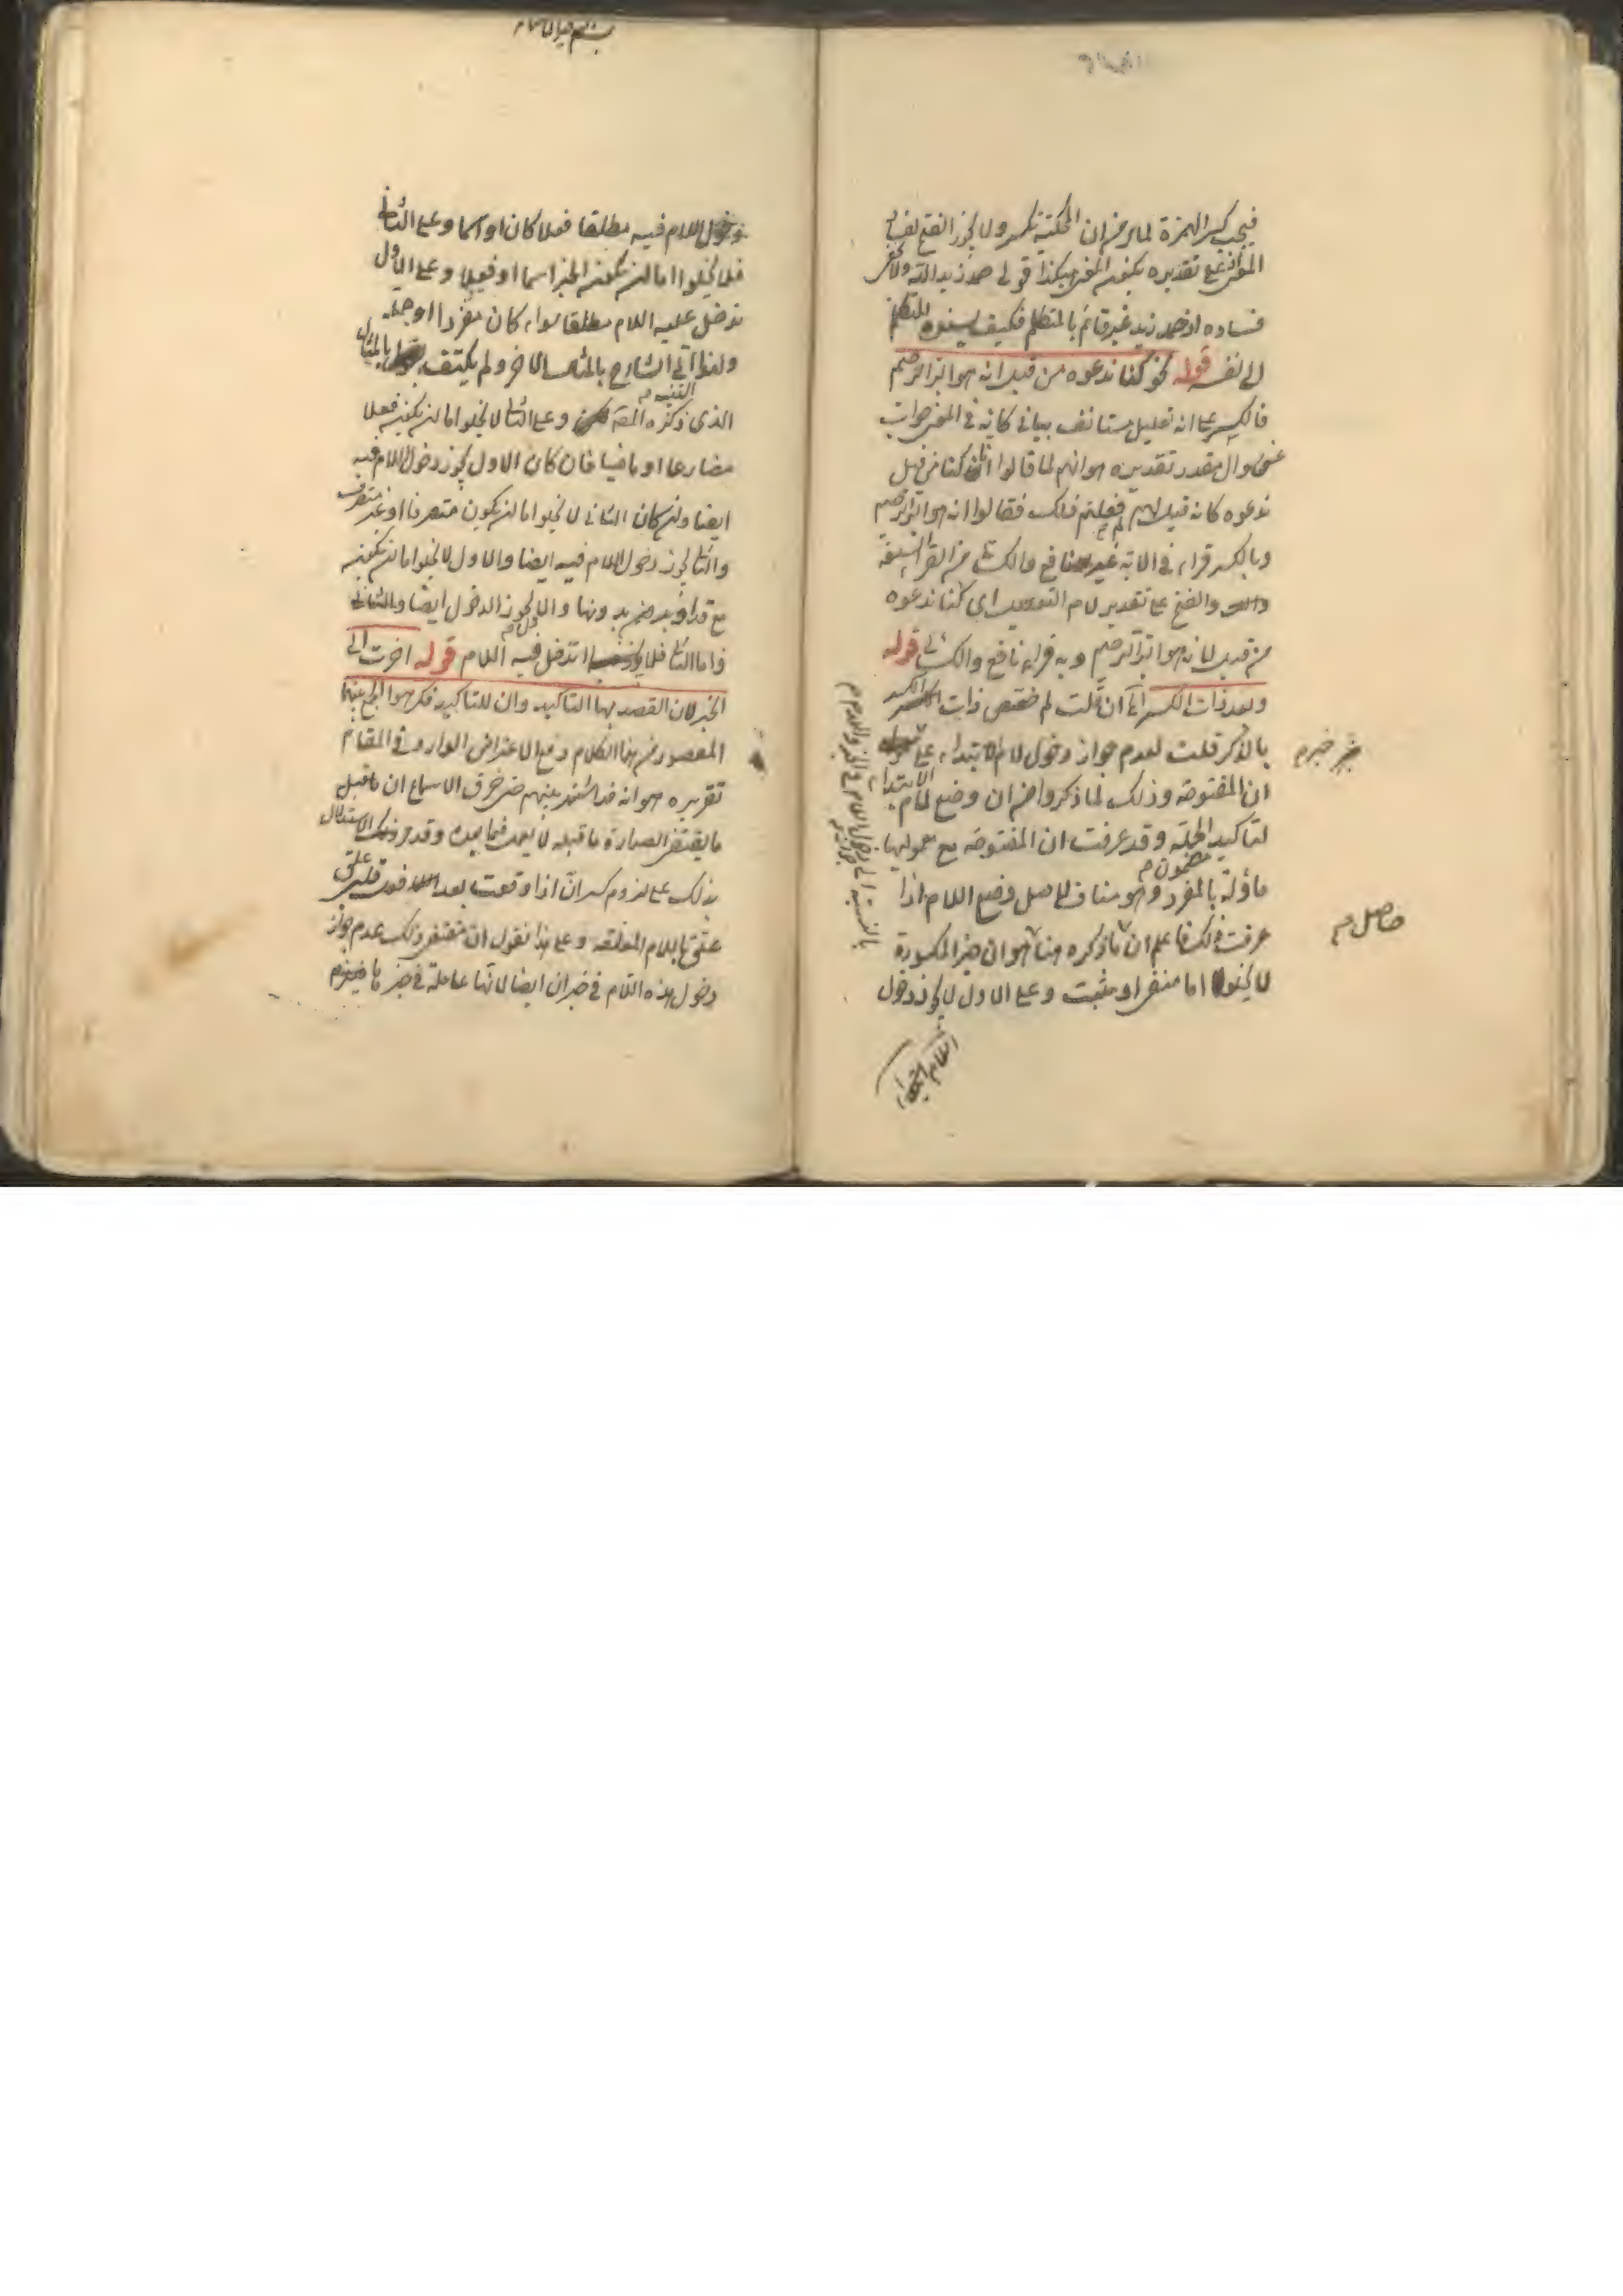 فيجب كسر الهمزة لما مر من ان المحكية تكسر ولا يجوز الفتح لفساد
المعنى على تقديره يكون المعنى هكذا قولى حمد زيد الله ولا يخفى
فساده اذ حمد زيد غير قائم بالمتكلم فكيف يسنده المتكلم
الى نفسه قوله نحو كنا ندعوه من قبل انه هو البر الرحيم
فالكسر على انه تعليل مستانف بيانى كانه فى المعنى جواب
عن سوال مقدر تقديره هو انهم لما قالوا انا كنا من قبل
ندعوه كانه قيل لهم لم فعلتم ذلك فقالوا انه هو البر الرحيم
وبالكسر قراء فى الاية غير نافع والكسائى من القراء السبعة
والفتح على تقدير لام التعليل اى كنا ندعوه
من قبل لانه هو البر الرحيم وبه قراء نافع والكسائى قوله
وبعد ذات الكسر الخ ان قلت لم خصص ذات الكسر
بالذكر قلت لعدم جواز دخول لام الابتداء على
ان المفتوحة وذلك لما ذكروا من ان وضع لام الابتداء
لتاكيد الجملة وقد عرفت ان المفتوحة مع معموليها
ماؤلة بالمفرد وهو مناف لاصل وضع اللام اذا
عرفت ذلك فاعلم ان ما ذكره هنا هو ان خبر المكسورة
لا يخلوا اما منفى او مثبت وعلى الاول لا يجوز دخول
خبر
مضمون
حاصل
دخول اللام فيه مطلقا فعلا كان او اسما وعلى الثانى
فلا يخلوا اما ان يكون الخبر اسما او فعلا وعلى الاول
تدخل عليه اللام مطلقا سواء كان مفردا او جملة
ولهذا اتى الشارح بالمثال الاخر ولم يكتف بالمثال
الذى ذكره المصنف وعلى الثانى لا يخلوا اما ان يكون فعلا
مضارعا او ماضيا فان كان الاول يجوز دخول اللام فيه
ايضا وان كان الثانى لا يخلوا اما ان يكون متصرفا او غير متصرف
والثانى يجوز دخول اللام فيه ايضا والاول لا يخلوا اما ان يكون
مع قد او بدونها والاول يجوز الدخول ايضا والثانى
واما الثانى فلا تدخل فيه اللام قوله اخرت الى
الخبر لان القصد بها التاكيد وان للتاكيد فكرهوا الجمع بينهما
المقصود من هذا الكلام دفع الاعتراض الوارد فى المقام
تقريره هو انه قد اشتهر بينهم من خرق الاسماع ان ما قبل
ما يقتضى الصدارة ما قبله لا يعمل فيما بعده وقد مر الاستدلال
بذلك على لزوم كسر ان اذا وقعت بعد فعل قلبى
علق باللام المعلقة وعلى هذا نقول ان مقتضى ذلك عدم جواز
دخول هذه اللام فى خبر ان ايضا لانها عاملة فى خبرها